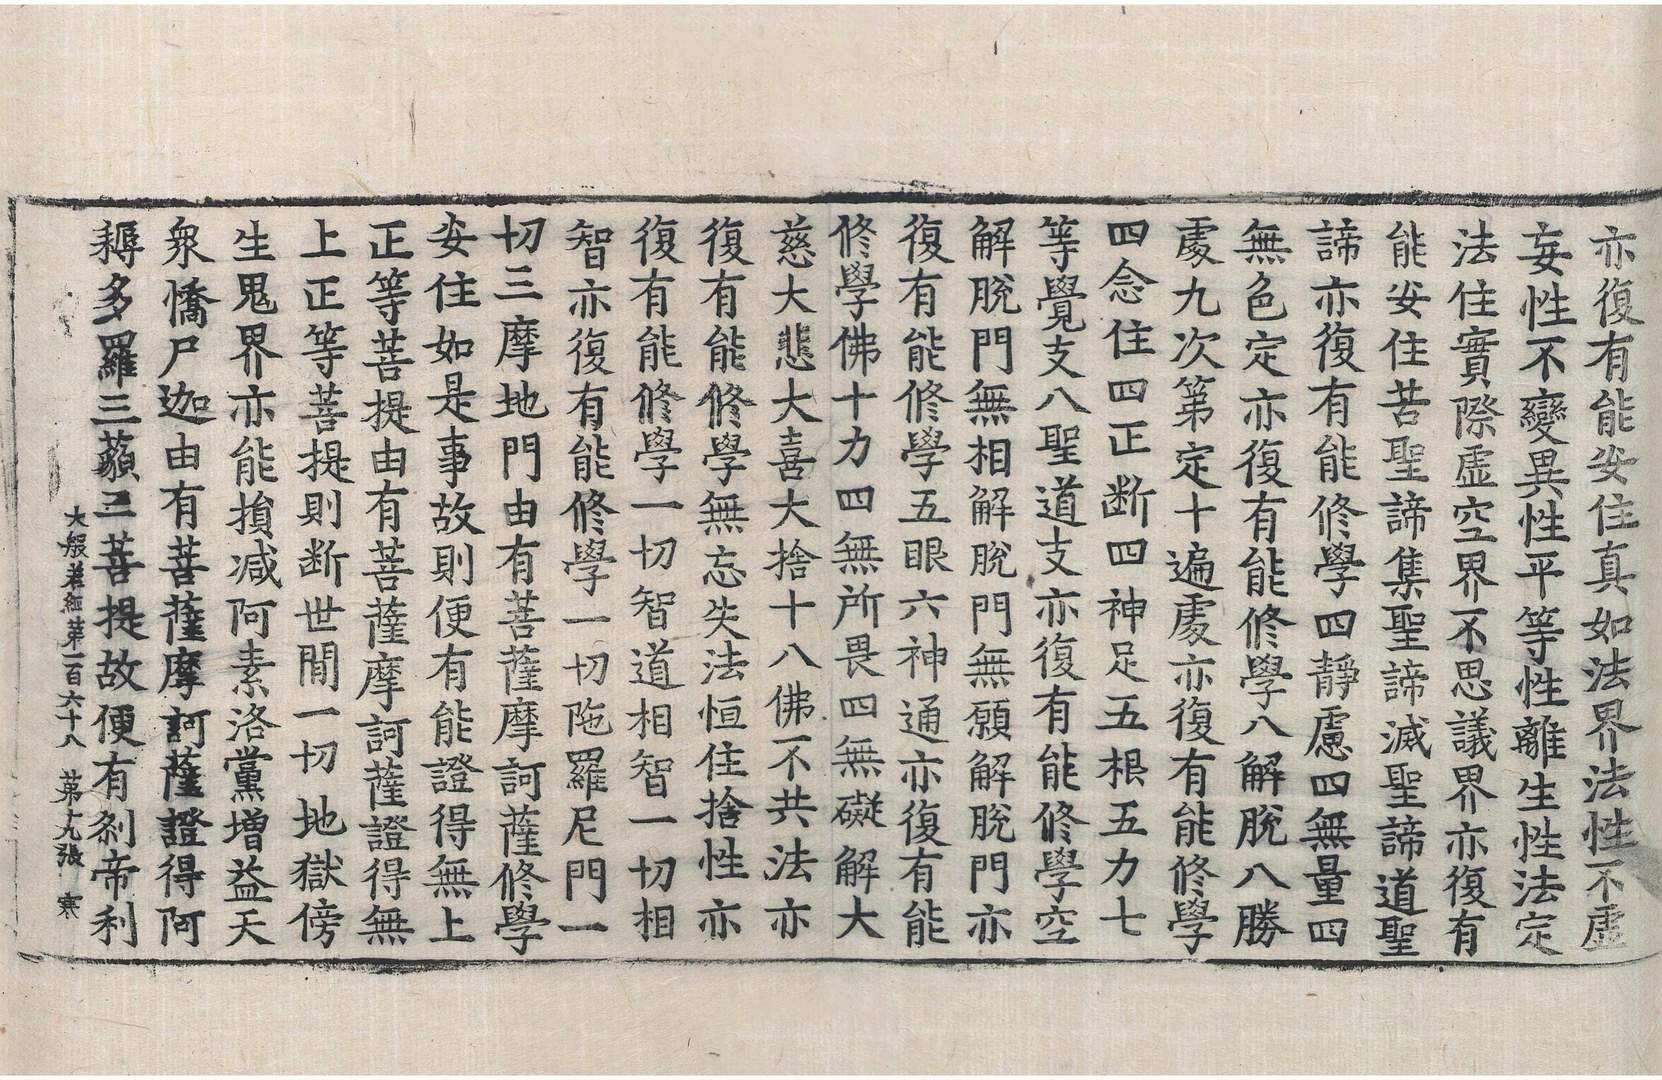 亦復有能安住真如法界法性不虛
妄性不變異性平等性離生性法定
法住實際虛空界不思議界亦復有
能安住苦聖諦集聖諦滅聖諦道聖
諦亦復有能修學四靜慮四無量四
無色定亦復有能修學八解脫八勝
處九次第定十遍處亦復有能修學
四念住四正断四神足五根五力七
等覺支八聖道支亦復有能修學空
解脫門無相解脫門無願解脫門亦
復有能修學五眼六神通亦復有能
修學佛十力四無所畏四無礙解大
慈大悲大喜大捨十八佛不共法亦
復有能修學無忘失法恒住捨性亦
復有能修學一切智道相智一切相
智亦復有能修學一切陁羅尼門一
切三摩地門由有菩薩摩訶薩修學
安住如是事故則便有能證得無上
正等菩提由有菩薩摩訶薩證得無
上正等菩提則断世間一切地獄傍
生鬼界亦能損减阿素洛黨增益天
衆憍尸迦由有菩薩摩訶薩證得阿
耨多羅三藐三菩提故便有剎帝利
大般若經第一百六十八 第十九張 寒